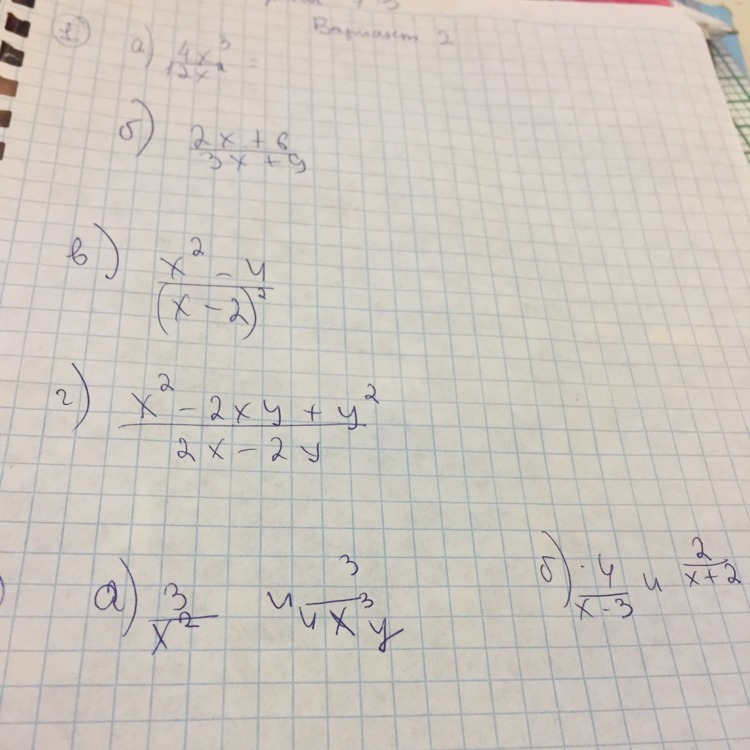 Вариант 2
1) а) 4x³/12x =
б) 2x + 6/3x + 9
в) x² - 4/(x - 2)²
г) x² - 2xy + y²/2x - 2y
а) 3/x² и 3/4x³y б) 4/x-3 и 2/x+2